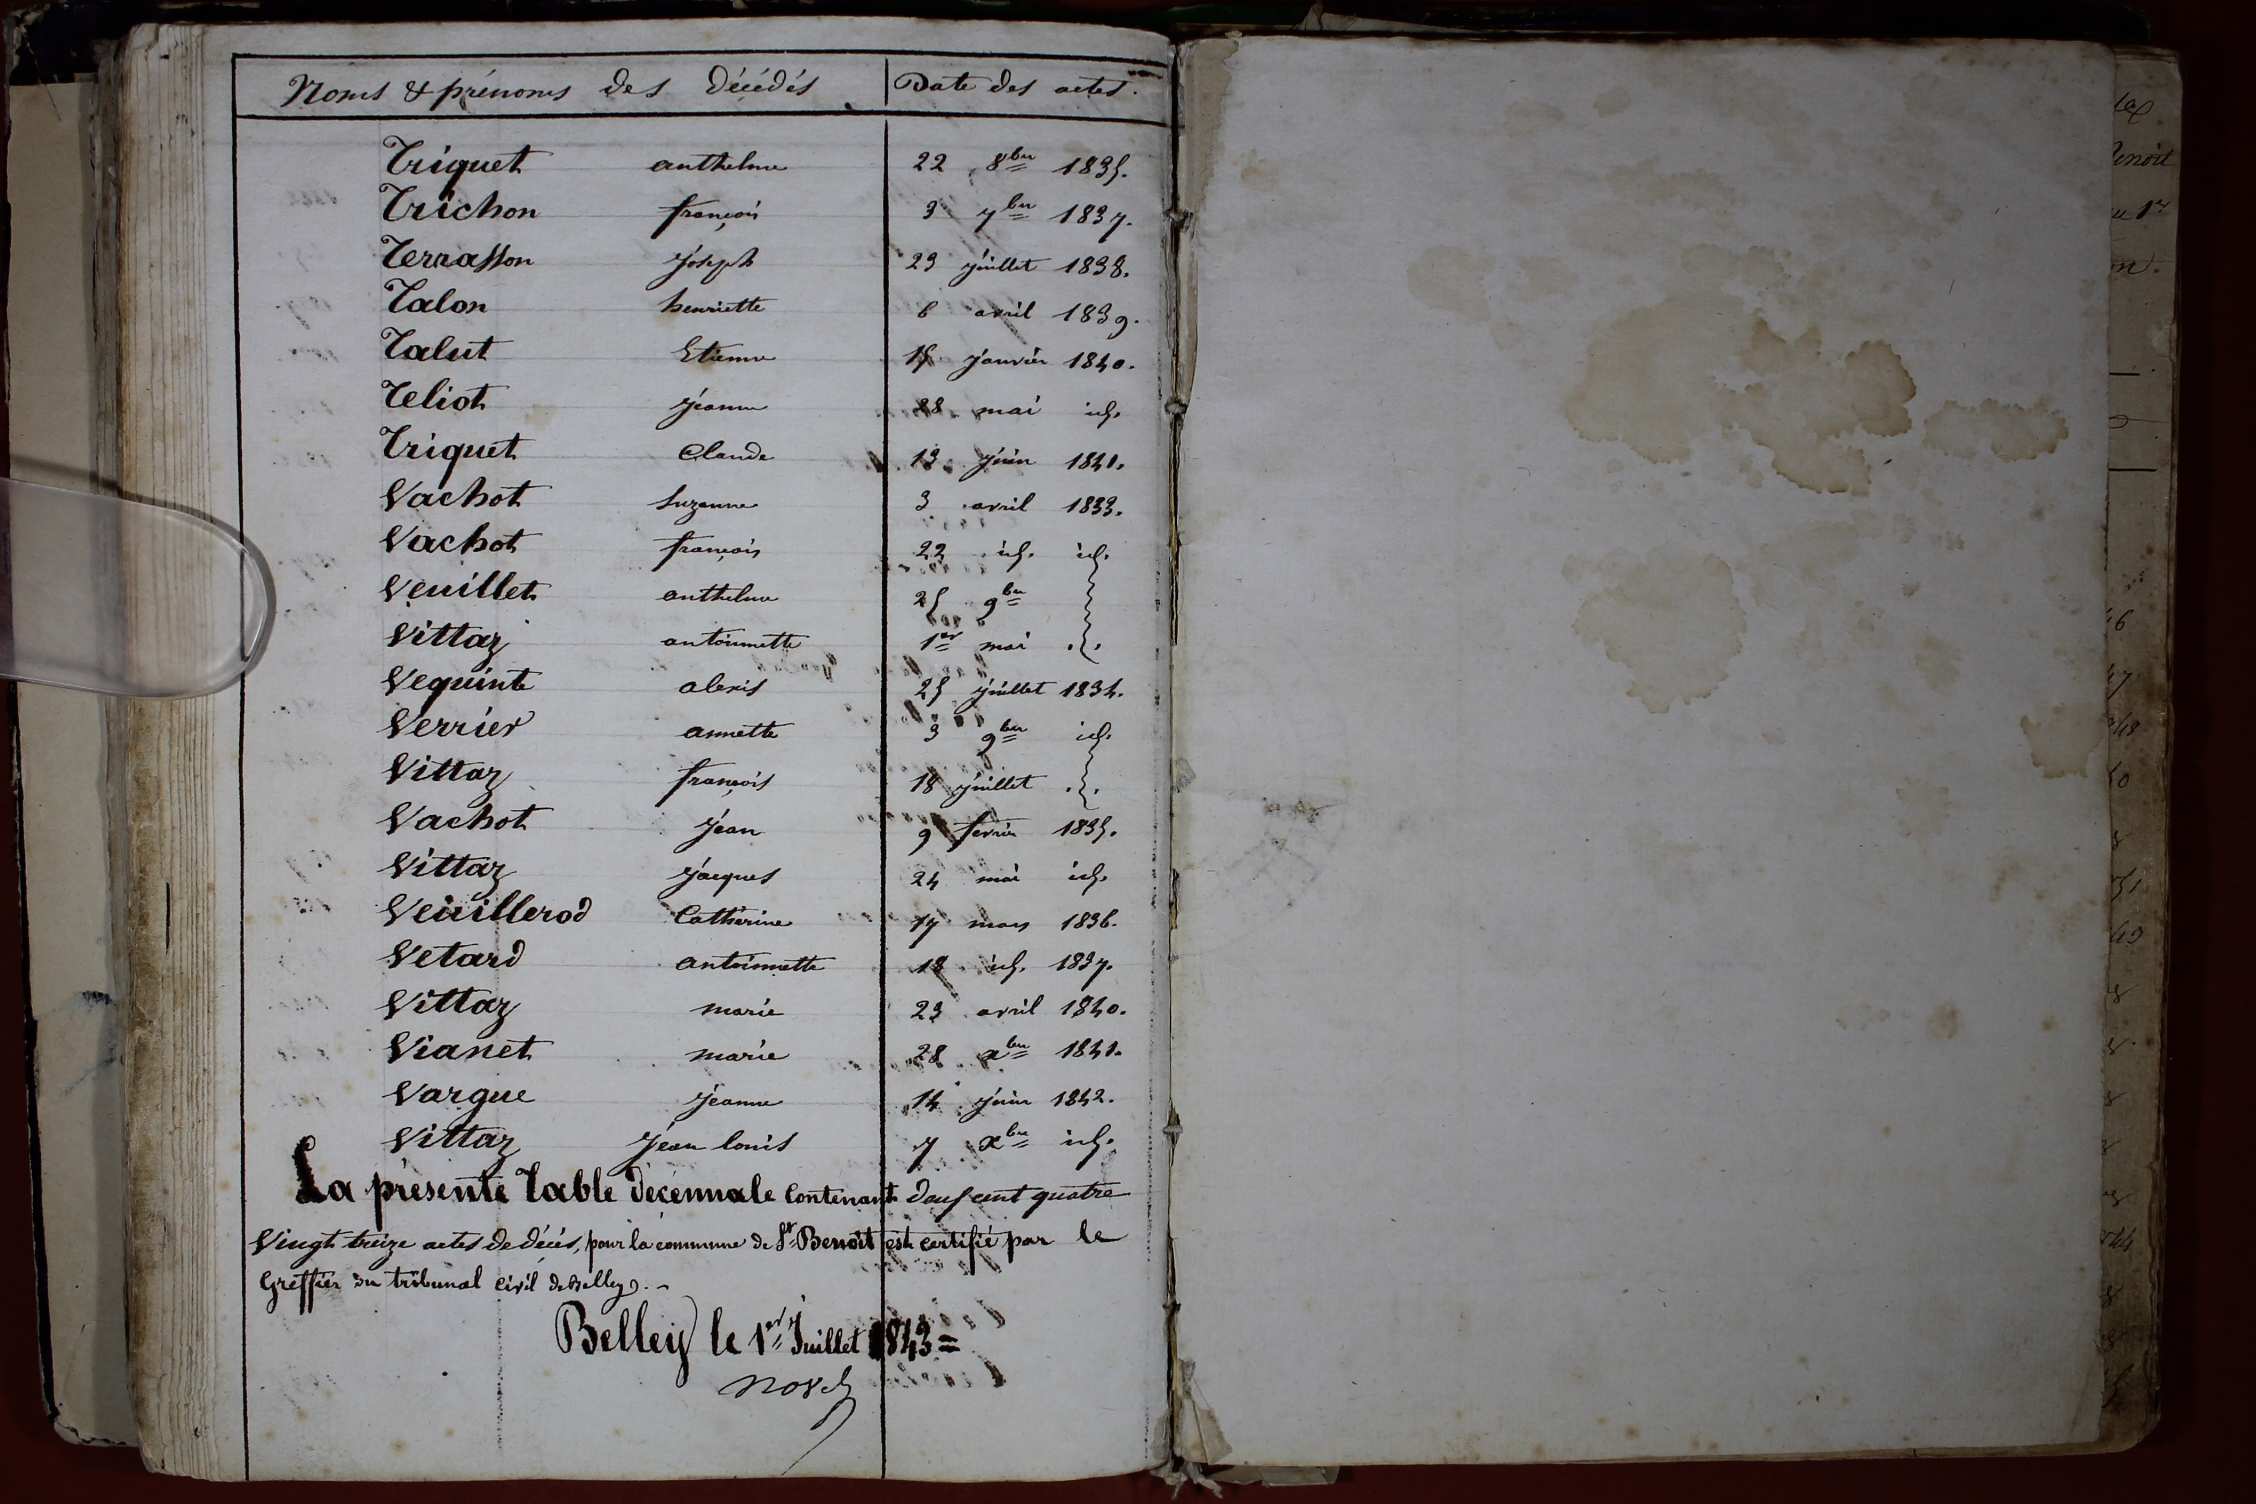 Noms & prénoms des Décédés Date des actes.
Triquet anthelme 22 8bre 1835.
Trichon françois 3 7bre 1837.
Terrasson joseph 23 juillet 1838.
Talon henriette 6 avril 1839.
Talut Etienne 15 janvier 1840.
Teliot jeanne 28 mai id.
Triquet Claude 13 juin 1841.
Vachot Suzanne 3 avril 1833.
Vachot françois 22 id. id.
Veuillet anthelme 25 9bre
Vittaz antoinette 1er mai
Vequinte alexis 25 juillet 1834.
Verrier annette 3 9bre id.
Vittaz françois 18 juillet
Vachot jean 9 fevrier 1835.
Vittaz jacques 24 mai id.
Veüillerod Catherine 17 mars 1836.
Vetard antoinette 18 id. 1837.
Vittaz marie 23 avril 1840.
Vianet marie 28 xbre 1841.
Vargue jeanne 14 juin 1842.
Vittaz jean louis 7 xbre id.
La présente Table décennale Contenant deux cent quatre
Vingt treize actes de décès, pour la commune de St Benoit est certifié par le
Greffier du tribunal civil de Belley.
Belley le 1er Juillet 1843 =